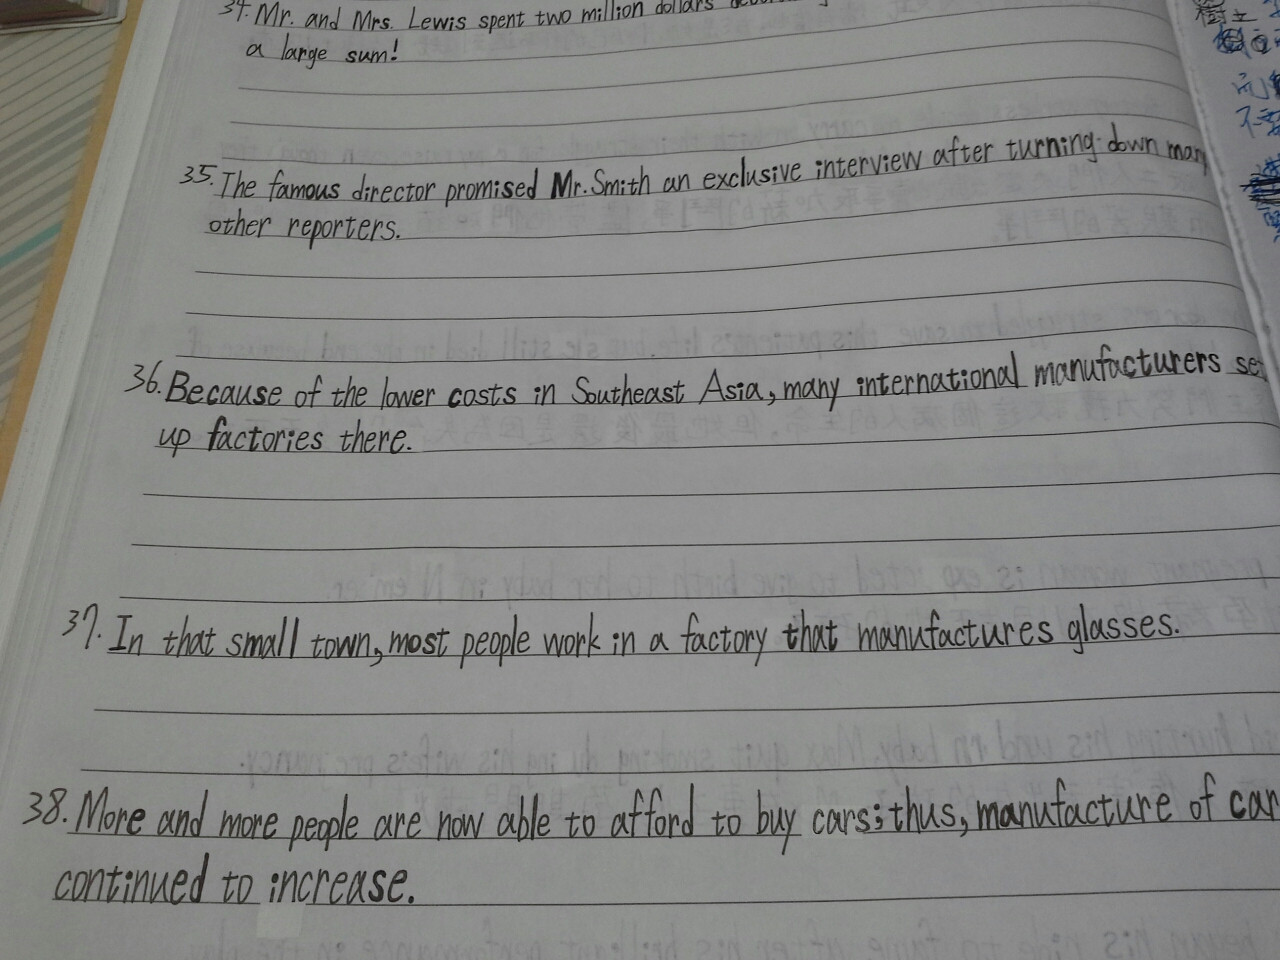 34. Mr. and Mrs. Lewis spent two million dollars
a large sum!
35. The famous director promised Mr. Smith an exclusive interview after turning down many
other reporters.
36. Because of the lower costs in Southeast Asia, many international manufacturers set
up factories there.
37. In that small town, most people work in a factory that manufactures glasses.
38. More and more people are now able to afford to buy cars; thus, manufacture of car
continued to increase.